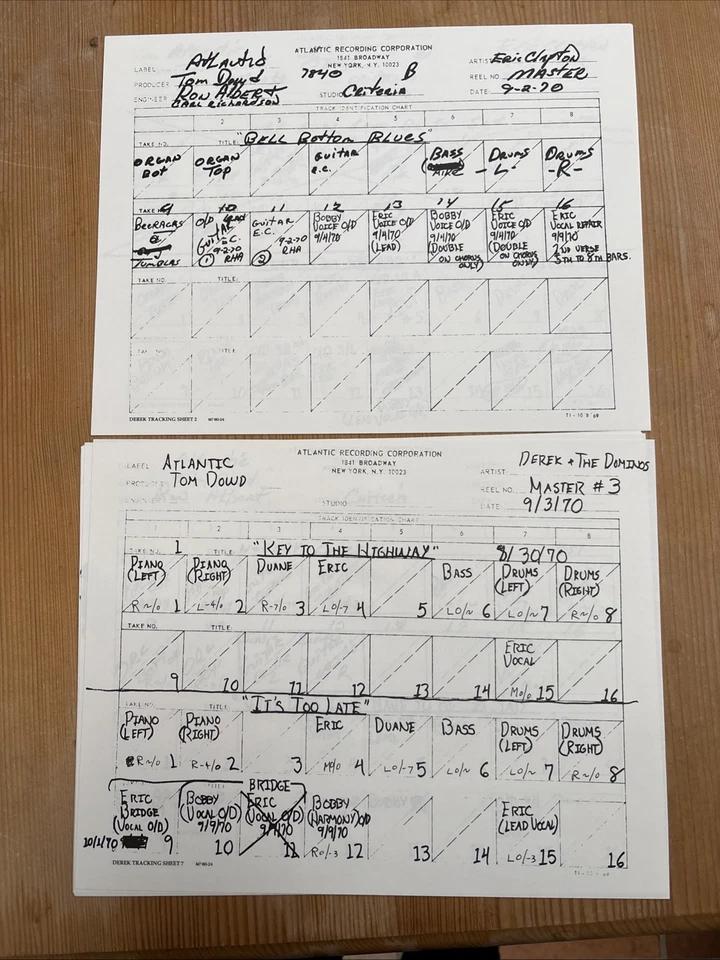 ATLANTIC RECORDING CORPORATION
1841 BROADWAY
NEW YORK, N.Y. 10023
LABEL Atlantic
ARTIST Eric Clapton
PRODUCER Tom Dowd
7840
B
REEL NO. MASTER
ENGINEER Ron Albert
STUDIO Criteria
DATE 9-2-70
CARL RICHARDSON
TRACK IDENTIFICATION CHART
1 2 3 4 5 6 7 8
TAKE NO. TITLE: "BELL BOTTOM BLUES"
ORGAN BOT
ORGAN TOP
GUITAR E.C.
BASS MIKE
DRUMS -L-
DRUMS -R-
TAKE 9 10 11 12 13 14 15 16
O/D LEAD
GUIT E.C. 9-2-70 RHA 1
GUITAR E.C. 9-2-70 RHA 2
BOBBY VOICE O/D 9/4/70
ERIC VOICE O/D 9/4/70 (LEAD)
BOBBY VOICE O/D 9/4/70 (DOUBLE ON CHORUS ONLY)
ERIC VOICE O/D 9/4/70 (DOUBLE ON CHORUS ONLY)
ERIC VOCAL REPAIR 9/9/70 2ND VERSE 5TH TO 8TH BARS.
TAKE NO. TITLE:
TITLE:
DEREK TRACKING SHEET 2
ATLANTIC RECORDING CORPORATION
1841 BROADWAY
NEW YORK, N.Y. 10023
LABEL ATLANTIC
ARTIST DEREK + THE DOMINOS
PRODUCER TOM DOWD
REEL NO. MASTER #3
STUDIO
DATE 9/3/70
TRACK IDENTIFICATION CHART
1 2 3 4 5 6 7 8
TAKE NO. 1 TITLE: "KEY TO THE HIGHWAY" 8/30/70
PIANO (LEFT) R~/0 1
PIANO (RIGHT) L-4/0 2
DUANE R-7/0 3
ERIC L0/-7 4
5
BASS L0/~ 6
DRUMS (LEFT) L0/~ 7
DRUMS (RIGHT) R~/0 8
TAKE NO. TITLE:
9 10 11 12 13 14
ERIC VOCAL M0/0 15
16
TAKE NO. TITLE: "IT'S TOO LATE"
PIANO (LEFT) R~/0 1
PIANO (RIGHT) R-4/0 2
3
ERIC M/0 4
DUANE L0/-7 5
BASS L0/~ 6
DRUMS (LEFT) L0/~ 7
DRUMS (RIGHT) R~/0 8
ERIC BRIDGE (VOCAL O/D) 10/1/70 9
BOBBY (VOCAL O/D) 9/9/70 10
BRIDGE ERIC (VOCAL O/D) 9/9/70 11
BOBBY (HARMONY) O/D 9/9/70 R0/-3 12
13
14
ERIC (LEAD VOCAL) L0/-3 15
16
DEREK TRACKING SHEET 7